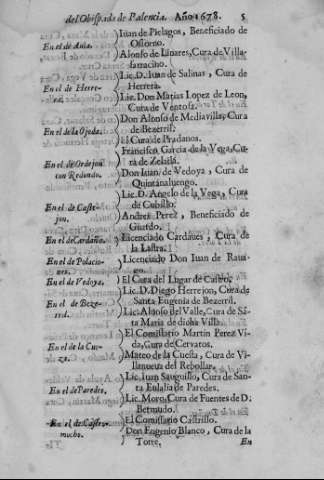 del Obispado de Palencia. Año 1678. 5
Iuan de Pielagos, Beneficiado de
Osiorno.
En el de Auia.
Alonso de Linares, Cura de Villa-
sarracino.
Lic. D. Iuan de Salinas, Cura de
Herrera.
En el de Herre-
Lic. Don Matias Lopez de Leon,
Cura de Ventosa.
Don Alonso de Mediavilla, Cura
de Bezerril.
En el de la Ojeda.
El Cura de Pradanos.
Francisco Garcia de la Vega, Cu-
ra de
En el de Ordejon
con Redondo.
Don Iuan de Vedoya, Cura de
Quintanaluengo.
Lic. D. Angelo de la Vega, Cura
de Cubillo.
En el de Caste-
jon.
Andres Perez, Beneficiado de
Guardo.
En el de Cardaño.
Licenciado Cardaues, Cura de
la Lastra.
En el de Polacio-
nes.
Licenciado Don Iuan de Raua-
En el de Vedoya.
El Cura del Lugar de Castro.
En el de Beze-
rril.
Lic. D. Diego Herrejon, Cura de
Santa Eugenia de Bezerril.
Lic. Alonso del Valle, Cura de Sā-
ta Maria de dicha Villa.
El Comissario Martin Perez Vi-
da, Cura de Cervatos.
En el de la Cue-
za.
Mateo de la Cuesta, Cura de Vi-
llanueva del Rebollar.
Lic. Iuan Sanguillo, Cura de San-
ta Eulalia de Paredes.
En el de Paredes.
Lic. Moro, Cura de Fuentes de D.
Bermudo.
El Comissario Castrillo.
En el de Castro-
mucho.
Don Eugenio Blanco, Cura de la
Torre.
En